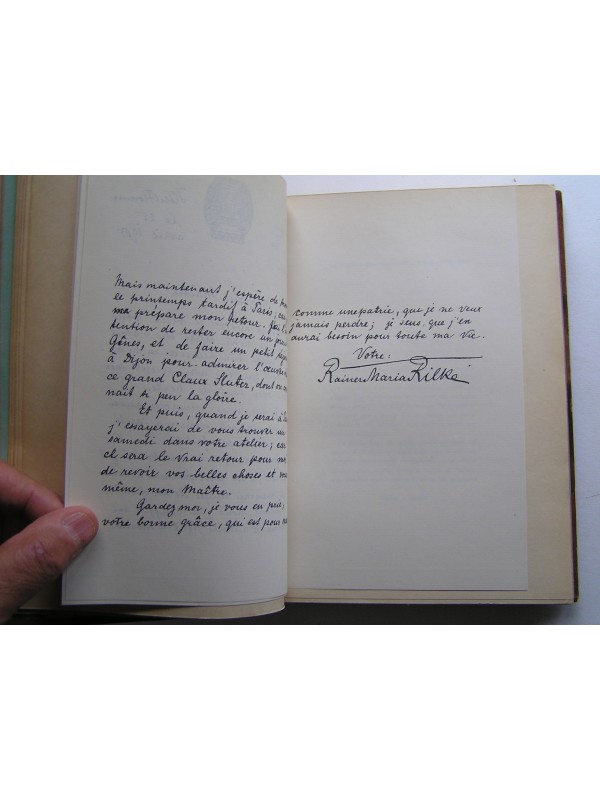 Mais maintenant j'espère de
le printemps tardif à Paris;
prépare mon retour.
tention de rester encore un
Gênes, et de faire un petit
à Dijon pour admirer l'œuvre
ce grand Claux Sluter, dont on
nait si peu la gloire.
Et puis, quand je serai à
j'essayerai de vous trouver un
samedi dans votre atelier;
cl sera le vrai retour pour
de revoir vos belles choses et
même, mon Maître.
Gardez moi, je vous en prie,
votre bonne grâce, qui est pour
comme une patrie, que je ne veux
jamais perdre; je sens que j'en
aurai besoin pour toute ma vie.
Votre:
Rainer Maria Rilke